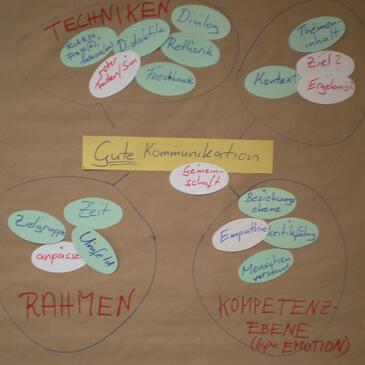 TECHNIKEN
Dialog
Didaktik
Rethorik
roter
Faden/Sinn
Feedback
Themen-
inhalt
Ziel?
Kontext
Ergebnis
Gute Kommunikation
Gemein-
schaft
Zeit
Zielgruppe
Umfeld
anpassen
RAHMEN
Beziehungs
ebene
Empathie
kritikfähig
Menschen
verstand
KOMPETENZ-
EBENE
(bspw. EMOTION)